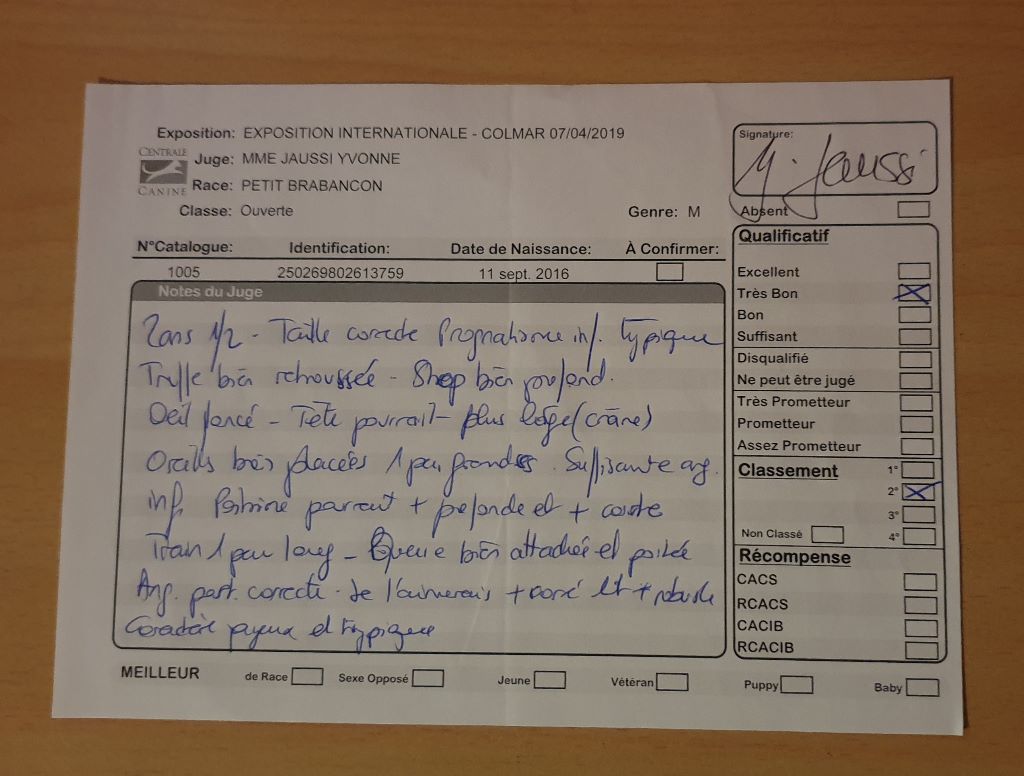 Exposition: EXPOSITION INTERNATIONALE - COLMAR 07/04/2019
CENTRALE
CANINE
Juge: MME JAUSSI YVONNE
Race: PETIT BRABANCON
Classe: Ouverte
Genre: M
Signature:
Y. Jaussi
Absent
N°Catalogue: Identification: Date de Naissance: À Confirmer:
1005 250269802613759 11 sept. 2016
Notes du Juge
2ans 1/2 - Taille correcte Prognathisme inf. typique
Truffe bien retroussée - Stop bien profond.
Oeil foncé - Tête pourrait plus large (crâne)
Oreilles bien placées 1 peu grandes. Suffisante ang.
inf. Poitrine + profonde et + courte
Train 1 peu long - Queue bien attachée et portée
Ang. post. correcte. Je l'aimerais + corsé et + robuste
Caractère joyeux et typique
Qualificatif
Excellent
Très Bon
Bon
Suffisant
Disqualifié
Ne peut être jugé
Très Prometteur
Prometteur
Assez Prometteur
Classement 1°
2°
3°
Non Classé 4°
Récompense
CACS
RCACS
CACIB
RCACIB
MEILLEUR de Race Sexe Opposé Jeune Vétéran Puppy Baby